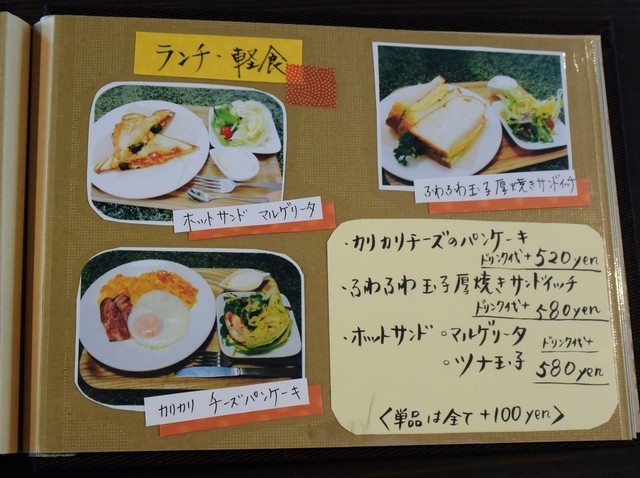 ランチ・軽食
ホットサンド マルゲリータ
ふわふわ玉子厚焼きサンドイッチ
カリカリ チーズパンケーキ
・カリカリチーズのパンケーキ
ドリンク代+520yen
・ふわふわ玉子厚焼きサンドイッチ
ドリンク代+580yen
・ホットサンド ○マルゲリータ
○ツナ玉子
ドリンク代+
580yen
〈単品は全て+100yen〉